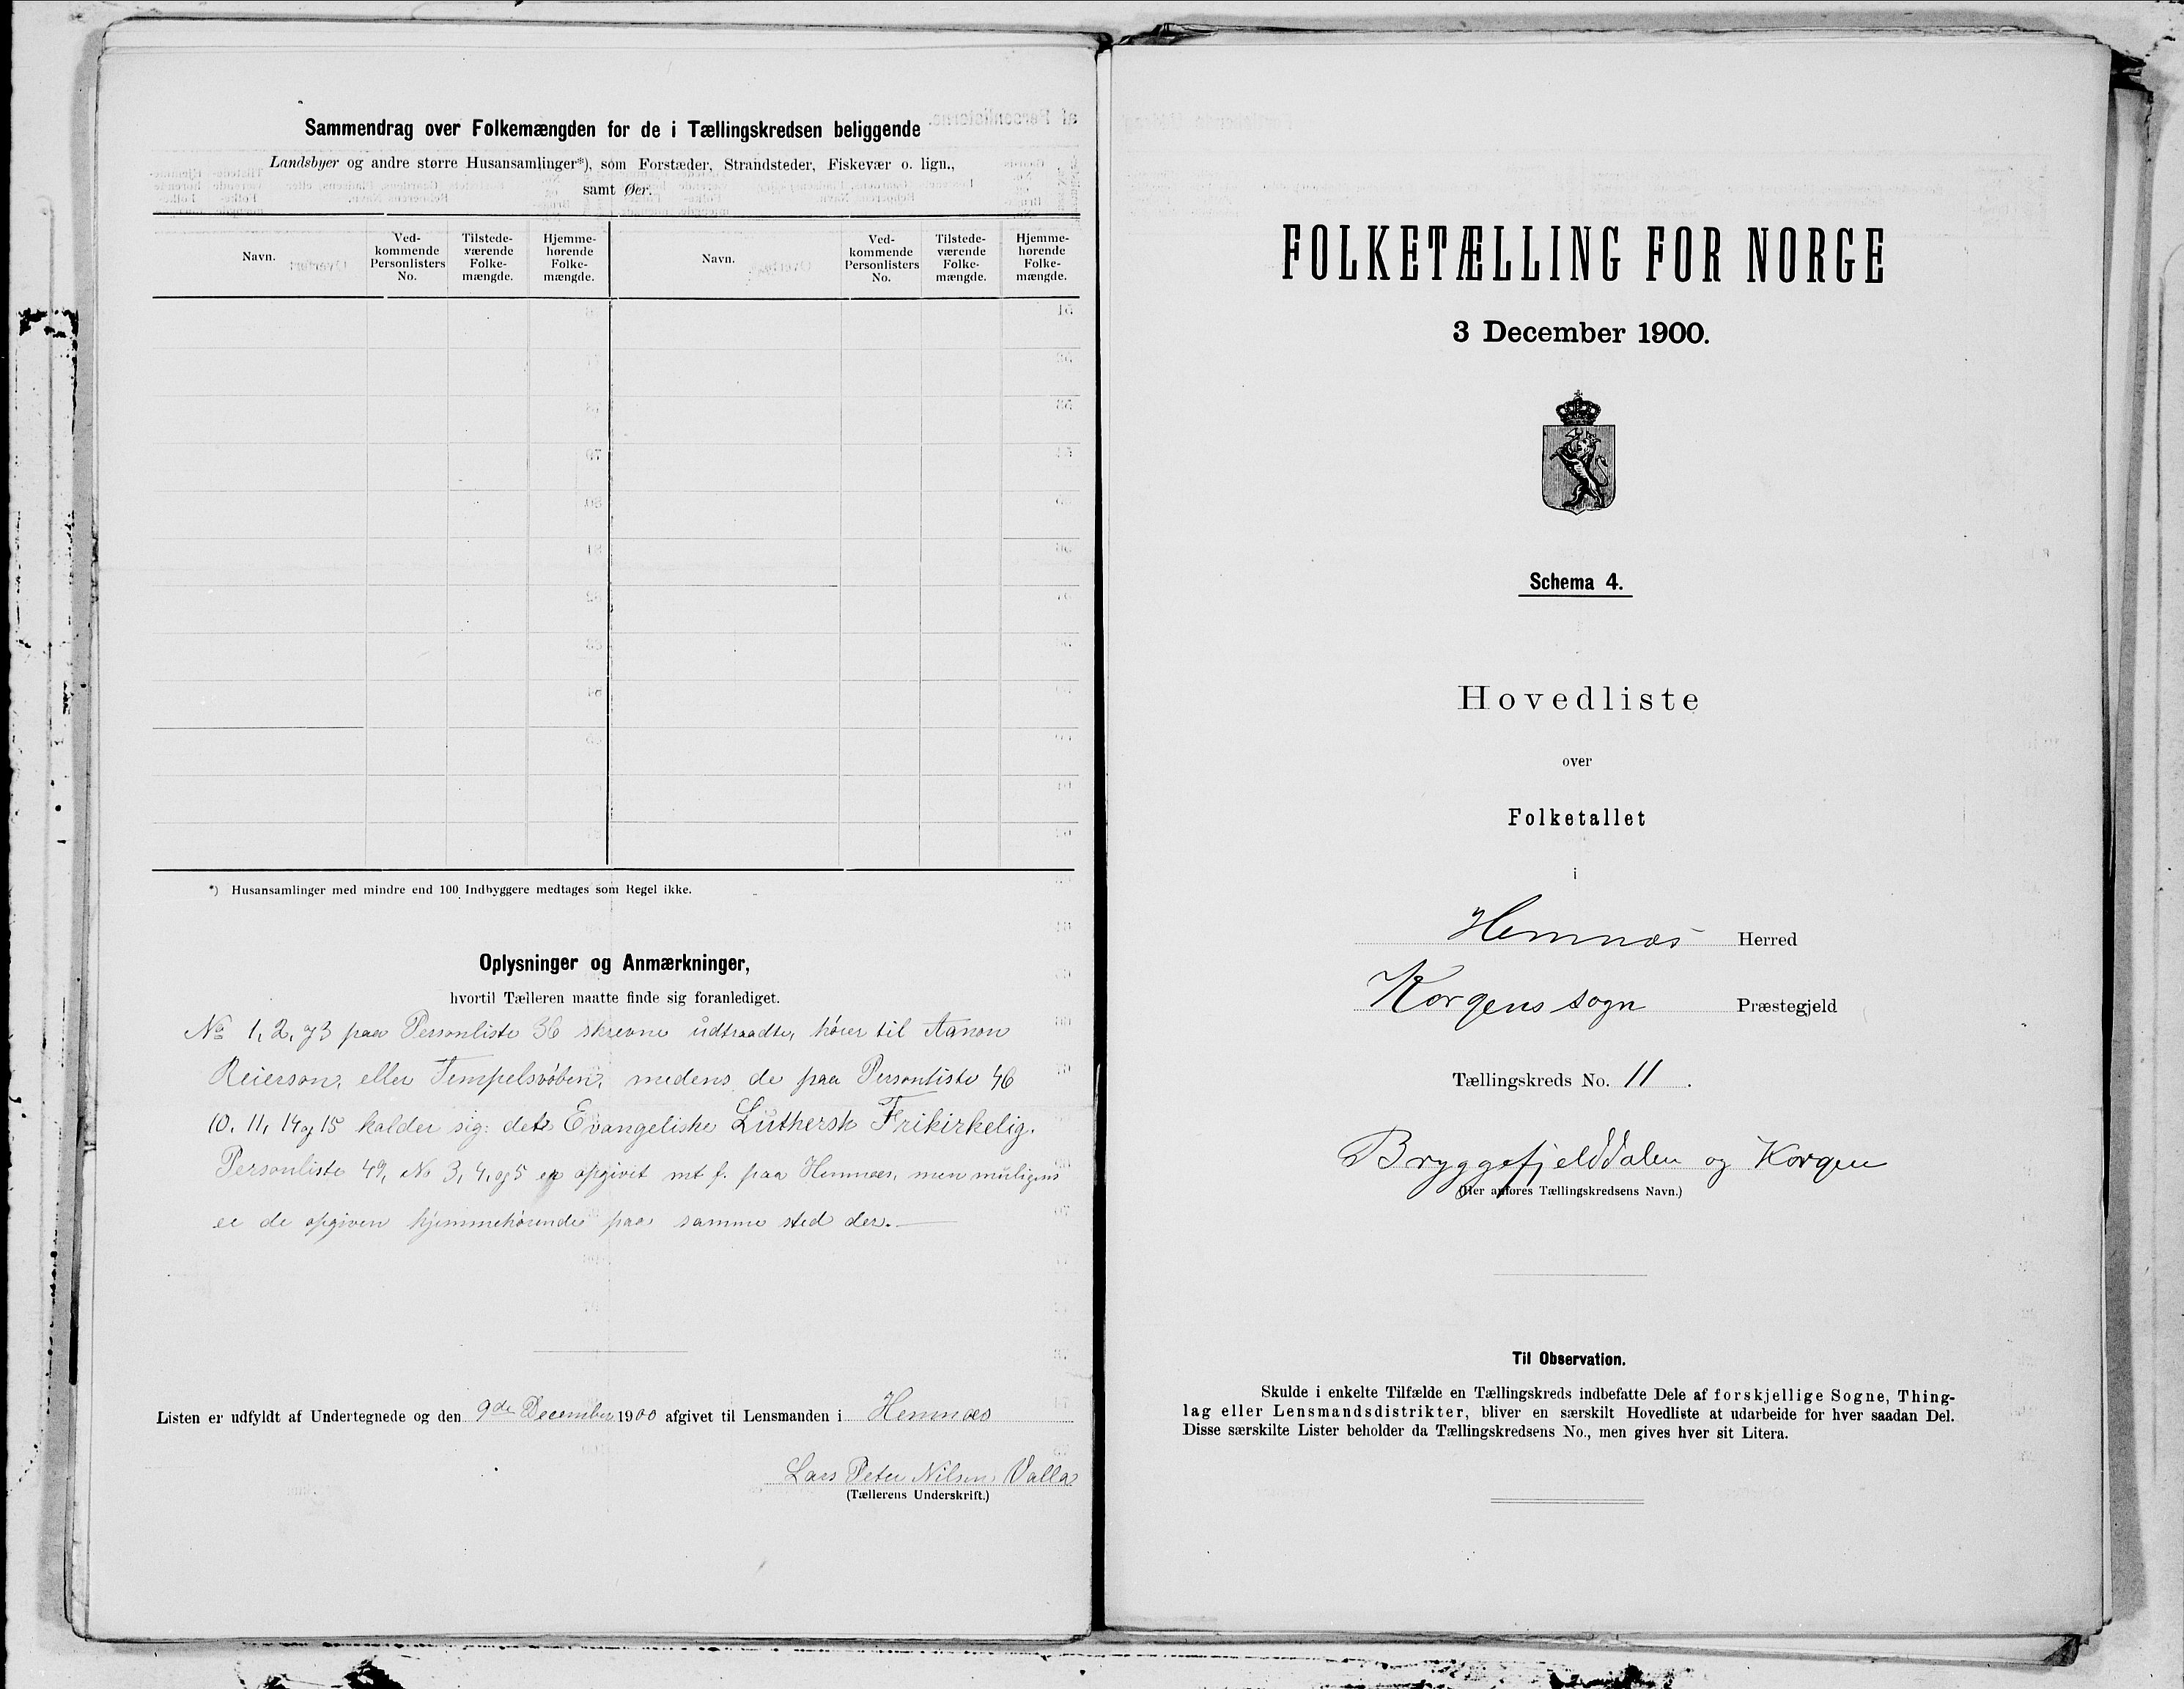 Sammendrag over Folkemængden for de i Tællingskredsen beliggende
Landsbyer og andre større Husansamlinger*), som Forstæder, Strandsteder, Fiskevær o. lign.,
samt Øer.
Navn.
Ved-
kommende
Personlisters
No.
Tilstede-
værende
Folke-
mængde.
Hjemme-
hørende
Folke-
mængde.
Navn.
Ved-
kommende
Personlisters
No.
Tilstede-
værende
Folke-
mængde.
Hjemme-
hørende
Folke-
mængde.
*) Husansamlinger med mindre end 100 Indbyggere medtages som Regel ikke.
Oplysninger og Anmærkninger,
hvortil Tælleren maatte finde sig foranlediget.
No 1, 2, og 3 paa Personliste 36 skrevne udtraadte, hører til Aanon
Reierson, eller Tempelsvöben, medens de paa Personliste 46
10, 11, 14 og 15 kalder sig: dets Evangeliske Luthersk Frikirkelig.
Personliste 49, No 3, 4, og 5 er opgivet mt f. paa Hemnæs, men muligens
er de opgiven hjemmehörende paa samme sted der.
Listen er udfyldt af Undertegnede og den 9de December 1900 afgivet til Lensmanden i Hemnæs
Lars Peter Nilsen Valla
(Tællerens Underskrift.)
FOLKETÆLLING FOR NORGE
3 December 1900.
Schema 4.
Hovedliste
over
Folketallet
i
Hemnæs Herred
Korgens sogn Præstegjeld
Tællingskreds No. 11.
Bryggefjelddalen og Korgen
(Her anføres Tællingskredsens Navn.)
Til Observation.
Skulde i enkelte Tilfælde en Tællingskreds indbefatte Dele af forskjellige Sogne, Thing-
lag eller Lensmandsdistrikter, bliver en særskilt Hovedliste at udarbeide for hver saadan Del.
Disse særskilte Lister beholder da Tællingskredsens No., men gives hver sit Litera.